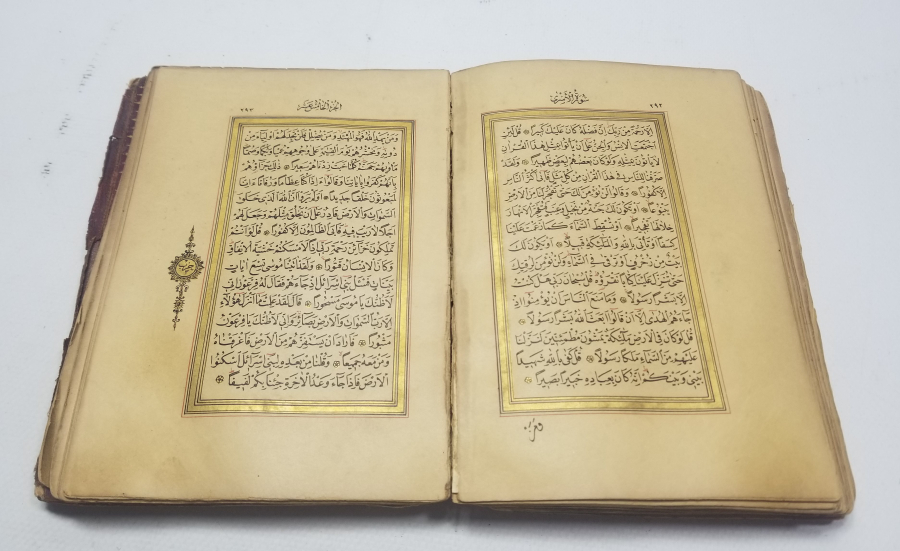 سورة الاسرى ٢٩٢
اِلَّا رَحْمَةً مِنْ رَبِّكَ اِنَّ فَضْلَهُ كَانَ عَلَيْكَ كَبِيرًا ۞ قُلْ لَئِنِ
اجْتَمَعَتِ الْاِنْسُ وَالْجِنُّ عَلٰى اَنْ يَأْتُوا بِمِثْلِ هٰذَا الْقُرْاٰنِ
لَا يَأْتُونَ بِمِثْلِهِ وَلَوْ كَانَ بَعْضُهُمْ لِبَعْضٍ ظَهِيرًا ۞ وَلَقَدْ
صَرَّفْنَا لِلنَّاسِ فِى هٰذَا الْقُرْاٰنِ مِنْ كُلِّ مَثَلٍ فَاَبٰى اَكْثَرُ النَّاسِ
اِلَّا كُفُورًا ۞ وَقَالُوا لَنْ نُؤْمِنَ لَكَ حَتّٰى تَفْجُرَ لَنَا مِنَ الْاَرْضِ
يَنْبُوعًا ۞ اَوْ تَكُونَ لَكَ جَنَّةٌ مِنْ نَخِيلٍ وَعِنَبٍ فَتُفَجِّرَ الْاَنْهَارَ
خِلَالَهَا تَفْجِيرًا ۞ اَوْ تُسْقِطَ السَّمَاءَ كَمَا زَعَمْتَ عَلَيْنَا
كِسَفًا اَوْ تَأْتِىَ بِاللّٰهِ وَالْمَلٰئِكَةِ قَبِيلًا ۞ اَوْ يَكُونَ لَكَ
بَيْتٌ مِنْ زُخْرُفٍ اَوْ تَرْقٰى فِى السَّمَاءِ وَلَنْ نُؤْمِنَ لِرُقِيِّكَ
حَتّٰى تُنَزِّلَ عَلَيْنَا كِتَابًا نَقْرَؤُهُ قُلْ سُبْحَانَ رَبِّى هَلْ كُنْتُ
اِلَّا بَشَرًا رَسُولًا ۞ وَمَا مَنَعَ النَّاسَ اَنْ يُؤْمِنُوا اِذْ
جَاءَهُمُ الْهُدٰى اِلَّا اَنْ قَالُوا اَبَعَثَ اللّٰهُ بَشَرًا رَسُولًا ۞
قُلْ لَوْ كَانَ فِى الْاَرْضِ مَلٰئِكَةٌ يَمْشُونَ مُطْمَئِنِّينَ لَنَزَّلْنَا
عَلَيْهِمْ مِنَ السَّمَاءِ مَلَكًا رَسُولًا ۞ قُلْ كَفٰى بِاللّٰهِ شَهِيدًا
بَيْنِى وَبَيْنَكُمْ اِنَّهُ كَانَ بِعِبَادِهِ خَبِيرًا بَصِيرًا ۞
الجزء الخامس عشر ٢٩٣
وَمَنْ يَهْدِ اللّٰهُ فَهُوَ الْمُهْتَدِ وَمَنْ يُضْلِلْ فَلَنْ تَجِدَ لَهُمْ اَوْلِيَاءَ مِنْ
دُونِهِ وَنَحْشُرُهُمْ يَوْمَ الْقِيٰمَةِ عَلٰى وُجُوهِهِمْ عُمْيًا وَبُكْمًا وَصُمًّا
مَأْوٰيهُمْ جَهَنَّمُ كُلَّمَا خَبَتْ زِدْنَاهُمْ سَعِيرًا ۞ ذٰلِكَ جَزَاؤُهُمْ
بِاَنَّهُمْ كَفَرُوا بِاٰيَاتِنَا وَقَالُوا ءَاِذَا كُنَّا عِظَامًا وَرُفَاتًا ءَاِنَّا
لَمَبْعُوثُونَ خَلْقًا جَدِيدًا ۞ اَوَلَمْ يَرَوْا اَنَّ اللّٰهَ الَّذِى خَلَقَ
السَّمٰوَاتِ وَالْاَرْضَ قَادِرٌ عَلٰى اَنْ يَخْلُقَ مِثْلَهُمْ وَجَعَلَ لَهُمْ
اَجَلًا لَا رَيْبَ فِيهِ فَاَبَى الظَّالِمُونَ اِلَّا كُفُورًا ۞ قُلْ لَوْ اَنْتُمْ
تَمْلِكُونَ خَزَائِنَ رَحْمَةِ رَبِّى اِذًا لَاَمْسَكْتُمْ خَشْيَةَ الْاِنْفَاقِ
وَكَانَ الْاِنْسَانُ قَتُورًا ۞ وَلَقَدْ اٰتَيْنَا مُوسٰى تِسْعَ اٰيَاتٍ
بَيِّنَاتٍ فَسْئَلْ بَنِى اِسْرَائِلَ اِذْ جَاءَهُمْ فَقَالَ لَهُ فِرْعَوْنُ اِنِّى
لَاَظُنُّكَ يَا مُوسٰى مَسْحُورًا ۞ قَالَ لَقَدْ عَلِمْتَ مَا اَنْزَلَ هٰؤُلَاءِ
اِلَّا رَبُّ السَّمٰوَاتِ وَالْاَرْضِ بَصَائِرَ وَاِنِّى لَاَظُنُّكَ يَا فِرْعَوْنُ
مَثْبُورًا ۞ فَاَرَادَ اَنْ يَسْتَفِزَّهُمْ مِنَ الْاَرْضِ فَاَغْرَقْنَاهُ
وَمَنْ مَعَهُ جَمِيعًا ۞ وَقُلْنَا مِنْ بَعْدِهِ لِبَنِى اِسْرَائِلَ اسْكُنُوا
الْاَرْضَ فَاِذَا جَاءَ وَعْدُ الْاٰخِرَةِ جِئْنَا بِكُمْ لَفِيفًا ۞
حزب